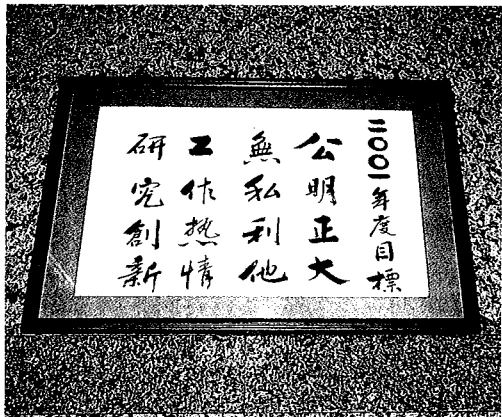 二〇〇一年度目標
公明正大
無私利他
工作热情
研究創新